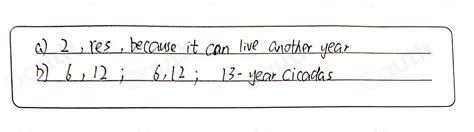 a) 2, res, because it can live another year
b) 6, 12; 6,12; 13-year cicadas